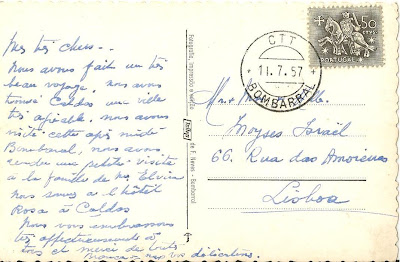 Mes très chers..
Nous avons fait un très
beau voyage, nous avons
trouvé Caldas une ville
très agréable, nous avons
visité cette après midi
Bombarral, nous avons
rendu une petite visite
à la famille de Elvira
Nous sommes à l'hôtel
Rosa à Caldas
Nous vous embrassons
très affectueusement à
tous et merci de
Fotografia, impressão e
de F. Neves - Bombarral
CTT
11.7.57
BOMBARRAL
$50
CTVS
PORTUGAL
Moyses Israël
66, Rua das Amoreiras
Lisboa